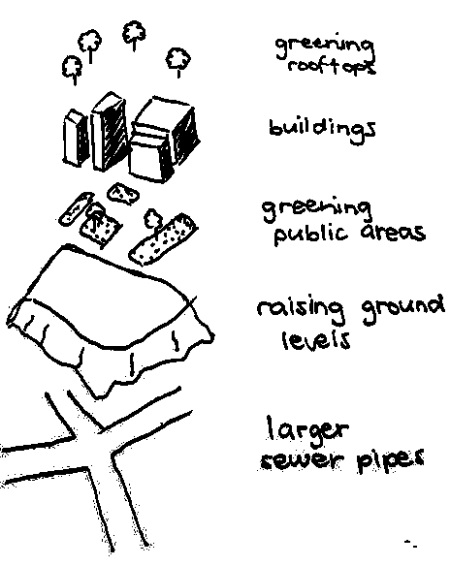 greening
rooftops
buildings
greening
public areas
raising ground
levels
larger
sewer pipes